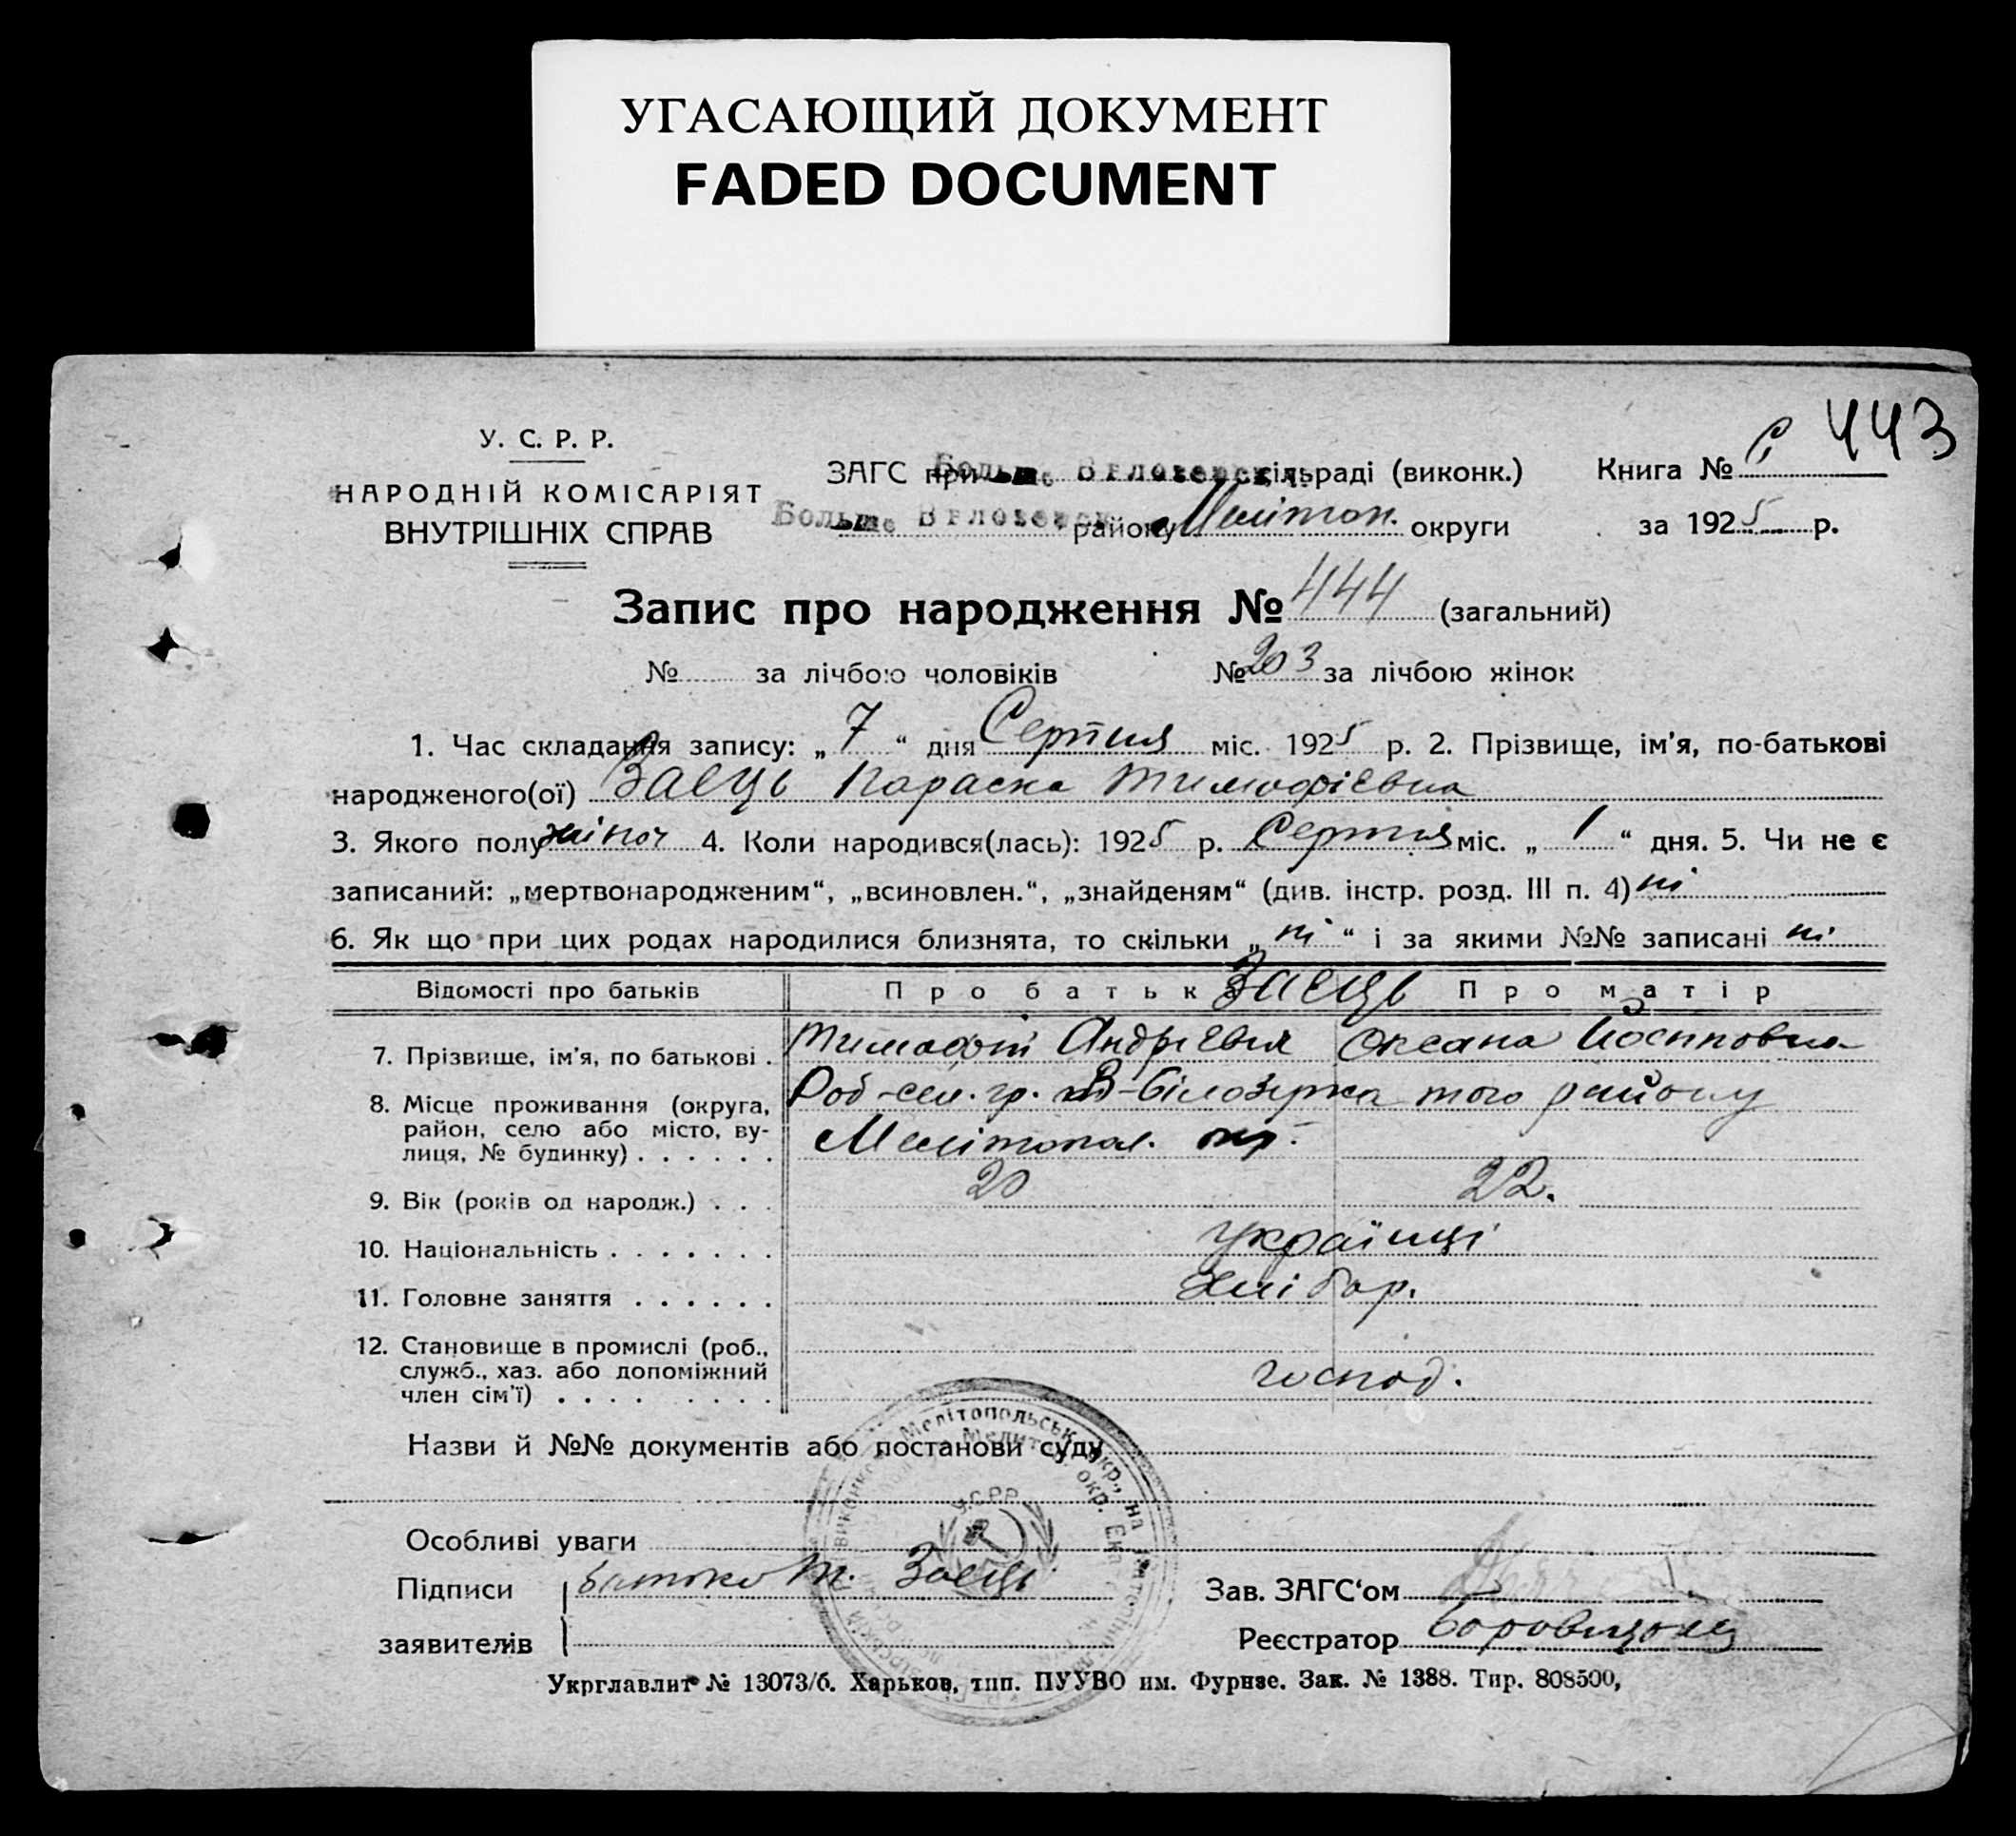 УГАСАЮЩИЙ ДОКУМЕНТ
FADED DOCUMENT
443
У. С. Р. Р.
НАРОДНІЙ КОМІСАРІЯТ
ВНУТРІШНІХ СПРАВ
ЗАГС при Больше Белозерск. сільраді (виконк.)
Больше Белозерск. району Мелітоп. округи
Книга №
за 1925 р.
Запис про народження № 444 (загальний)
№ за лічбою чоловіків № 203 за лічбою жінок
1. Час складання запису: „ 7 “ дня Серпня міс. 1925 р. 2. Прізвище, ім'я, по-батькові
народженого(ої) Заєць Параска Тимофієвна
3. Якого полу жіноч 4. Коли народився(лась): 1925 р. Серпня міс. „ 1 “ дня. 5. Чи не є
записаний: „мертвонародженим“, „всиновлен.“, „знайденям“ (див. інстр. розд. III п. 4) ні
6. Як що при цих родах народилися близнята, то скільки „ ні “ і за якими №№ записані ні
Відомості про батьків Про батька Заєць Про матір
7. Прізвище, ім'я, по батькові . Тимофій Андрієвич Оксана Йосиповна
8. Місце проживання (округа, район, село або місто, вулиця, № будинку) . . . . . . Роб-сел. гр. В-Білозерка того району
Мелітопол. окр.
9. Вік (років од народж.) . . . 20 22.
10. Національність . . . . . . . українці
11. Головне заняття . . . . . . хлібор.
12. Становище в промислі (роб.,
служб., хаз. або допоміжний
член сім'ї) . . . . . . . . господ.
Назви й №№ документів або постанови суду
У.С.Р.Р.
Особливі уваги
Підписи батько Т. Заєць
заявителів
Зав. ЗАГС‘ом
Реєстратор
Укрглавлит № 13073/б. Харьков, тип. ПУУВО им. Фрунзе. Зак. № 1388. Тир. 808500,